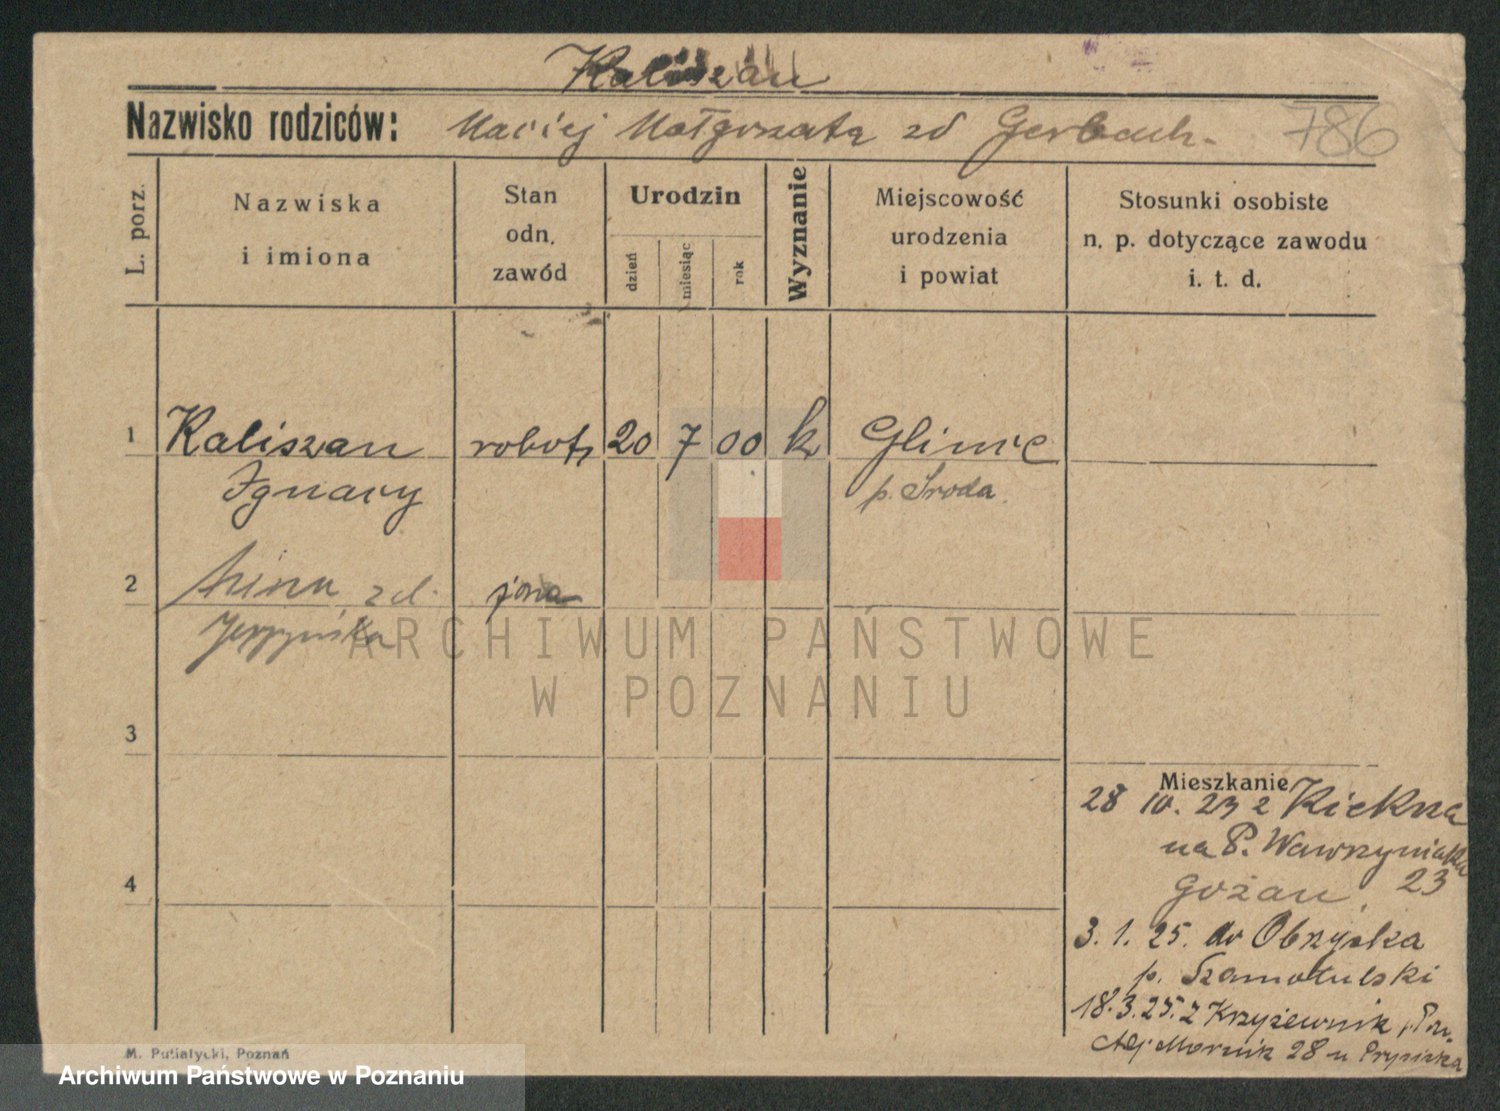 Kaliszan
Nazwisko rodziców: Maciej Małgorzata zd Gerbach.
786
L. porz.
Nazwiska
i imiona
Stan
odn.
zawód
Urodzin
dzień
miesiąc
rok
Wyznanie
Miejscowość
urodzenia
i powiat
Stosunki osobiste
n. p. dotyczące zawodu
i. t. d.
1 Kaliszan robotn 20 7 00 k
Ignacy p. Środa
2 zd. żona
ARCHIWUM PAŃSTWOWE
W POZNANIU
3
Mieszkanie
28 10. 23 z Kiekrza
na P. Wawrzyniaka
23
4
3. 1. 25. do Obrzycka
p. Szamotulski
18.3.25. z Krzyżewnik
28 u
M. Putiatycki, Poznań
Archiwum Państwowe w Poznaniu